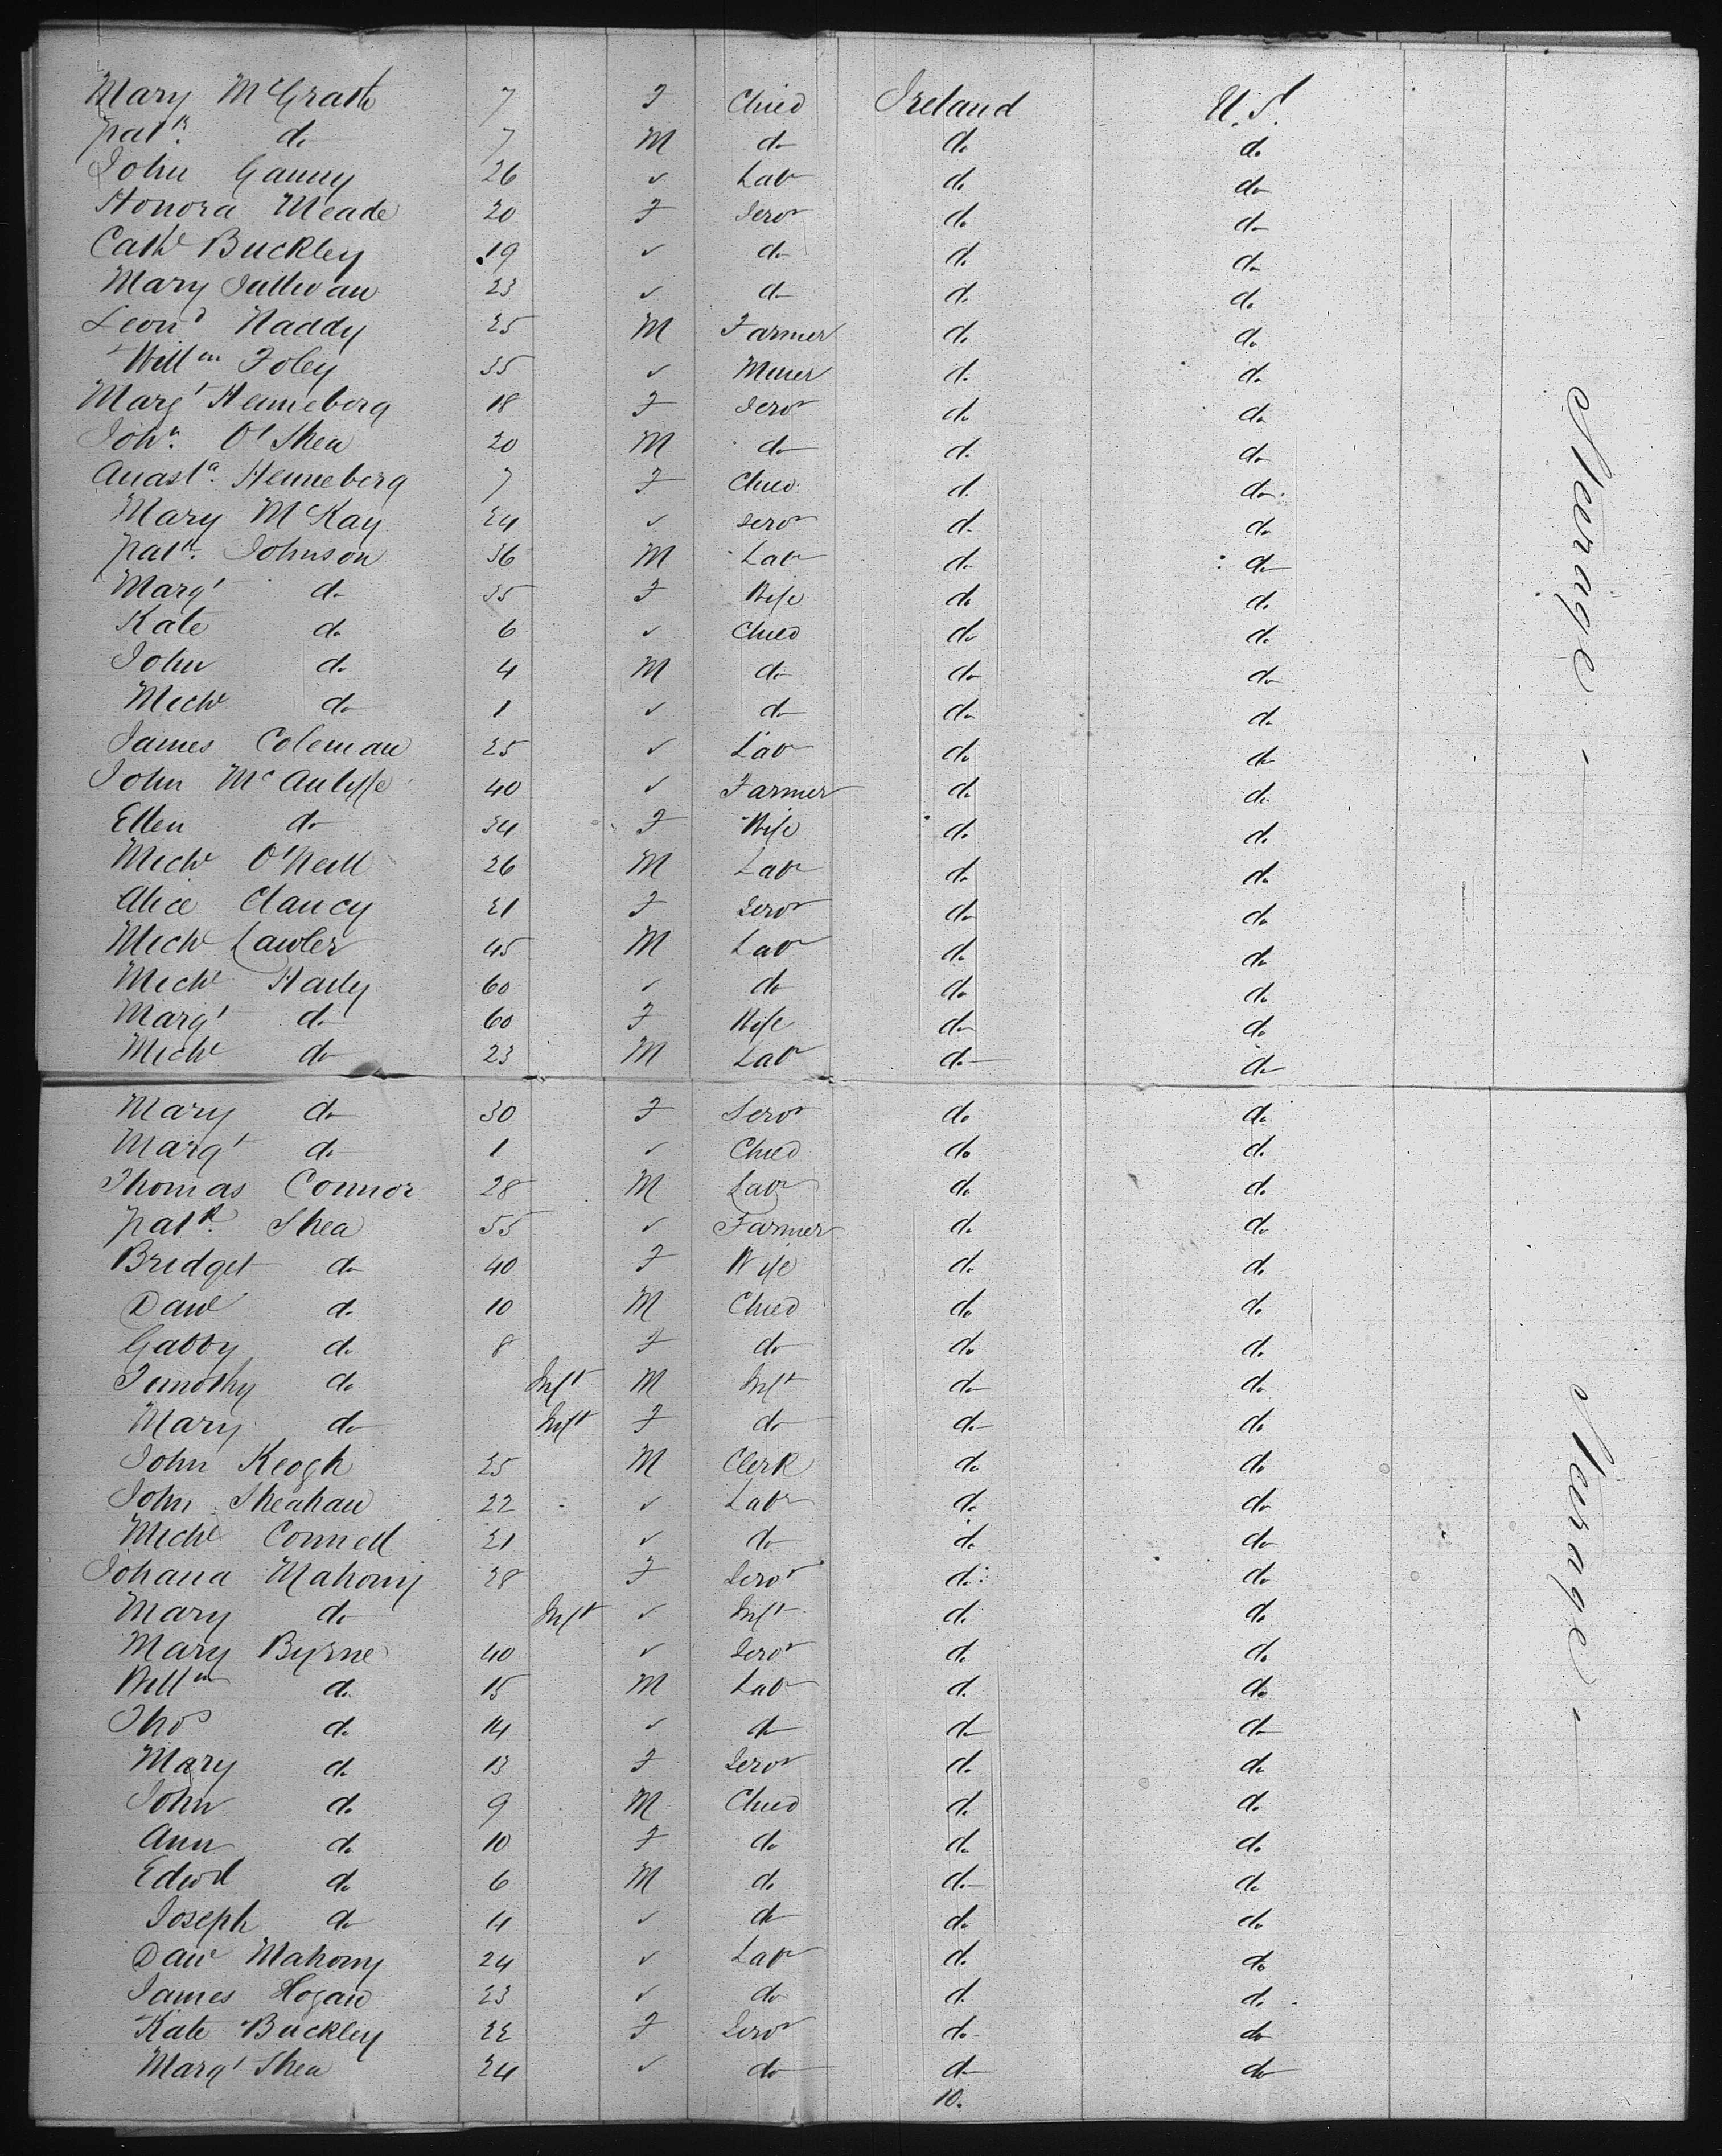 Mary McGrath 7 F Child Ireland U.S.
Patk. do 7 M do do do
John Ganny 26 ✓ Labr do do
Honora Meade 20 F Servt do do
Cathe Buckley 19 ✓ do do do
Mary Sullivan 23 ✓ do do do
Leond Naddy 25 M Farmer do do
Willm Foley 35 ✓ Miner do do
Margt Henneberg 18 F Servt do do
John. O'Shea 20 M do do do
Anasta. Henneberg 7 F Child do do
Mary McKay 24 ✓ Servt do do
Patk. Johnson 36 M Labr do do
Margt do 35 F Wife do do
Kate do 6 ✓ Child do do
John do 4 M do do do
Michl do 1 ✓ do do do
James Coleman 25 ✓ Labr do do
John McAuliffe 40 ✓ Farmer do do
Ellen do 34 F Wife do do
Michl O'Neill 26 M Labr do do
Alice Clancy 21 F Servt do do
Michl Lawler 45 M Labr do do
Michl Haily 60 ✓ do do do
Margt do 60 F Wife do do
Michl do 23 M Labr do do
Steerage
Mary do 30 F Servt do do
Margt do 1 ✓ Child do do
Thomas Connor 28 M Labr do do
Patk. Shea 55 ✓ Farmer do do
Bridget do 40 F Wife do do
Danl do 10 M Child do do
Gabby do 8 F do do do
Timothy do Inft M Inft do do
Mary do Inft F do do do
John Keogh 25 M Clerk do do
John Sheahan 22 ✓ Labr do do
Michl Connell 21 ✓ do do do
Johana Mahony 28 F Servt do do
Mary do Inft ✓ Inft do do
Mary Byrne 40 ✓ Servt do do
Willm do 15 M Labr do do
Thos do 14 ✓ do do do
Mary do 13 F Servt do do
John do 9 M Child do do
Ann do 10 F do do do
Edwd do 6 M do do do
Joseph do 4 ✓ do do do
Danl Mahony 24 ✓ Labr do do
James Hogan 23 ✓ do do do
Kate Buckley 22 F Servt do do
Margt Shea 24 ✓ do do do
Steerage
10.